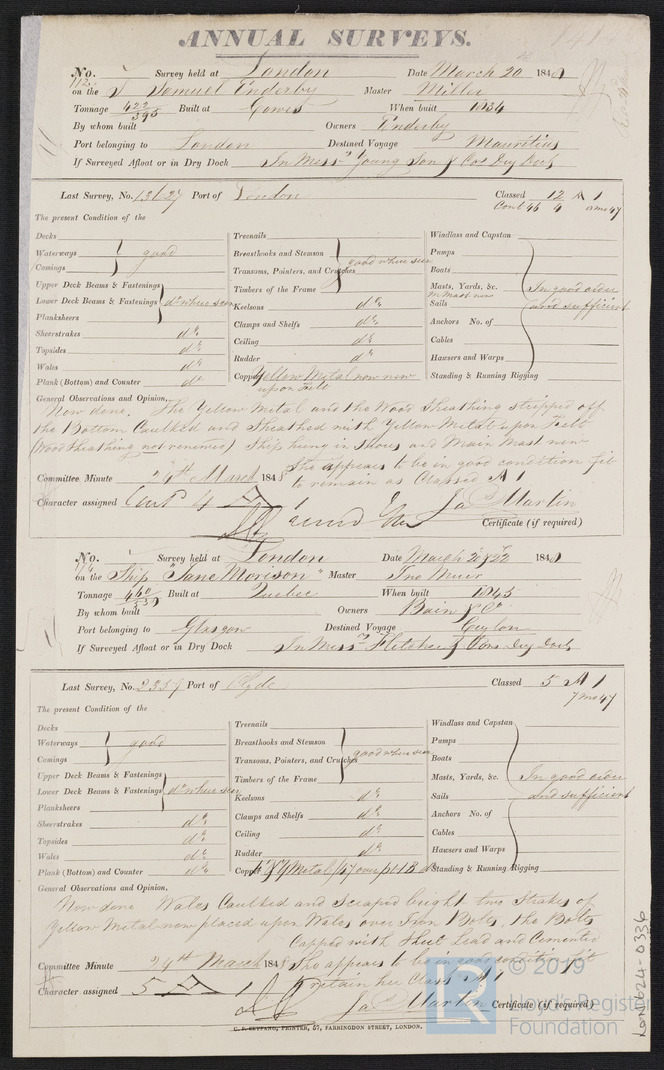 ANNUAL SURVEYS.
No. Survey held at London Date March 20 1848
on the S Samuel Enderby Master Miller
Tonnage 422/395 Built at Cowes When built 1834
By whom built Owners Enderby
Port belonging to London Destined Voyage Mauritius
If Surveyed Afloat or in Dry Dock In Messrs Young Son & Cos Dry Dock
Last Survey, No. 13627 Port of London Classed 12 A 1
Cont 46 4 47
The present Condition of the
Decks
Waterways good
Comings
Upper Deck Beams & Fastenings
Lower Deck Beams & Fastenings do where seen
Planksheers
Sheerstrakes do
Topsides do
Wales do
Plank (Bottom) and Counter do
Treenails
Breasthooks and Stemson good where seen
Transoms, Pointers, and Crutches
Timbers of the Frame
Keelsons do
Clamps and Shelfs do
Ceiling do
Rudder do
Copper Yellow Metal now new
upon Felt
Windlass and Capstan
Pumps
Boats In good order
Masts, Yards, &c. and sufficient
M Mast new
Sails
Anchors No. of
Cables
Hawsers and Warps
Standing & Running Rigging
General Observations and Opinion,
Now done. The Yellow Metal and the Wood Sheathing stripped off
the Bottom Caulked and Sheathed with Yellow Metal upon Felt
(Wood Sheathing not renewed) Ship hung in Shores and Main Mast new
She appears to be in good condition fit
Committee Minute 24th March 1848 to remain as Classed A 1
Character assigned Cont 4 A 1 Jas Martin
Certificate (if required)
No. Survey held at London Date March 20 & 22 1848
on the Ship "Jane Morison" Master Jno Muir
Tonnage 460/539 Built at Quebec When built 1845
By whom built Owners Bain & Co
Port belonging to Glasgow Destined Voyage Ceylon
If Surveyed Afloat or in Dry Dock In Messrs Fletcher & Sons Dry Dock
Last Survey, No. 2359 Port of Clyde Classed 5 A 1
7 mo 47
The present Condition of the
Decks
Waterways good
Comings
Upper Deck Beams & Fastenings
Lower Deck Beams & Fastenings do where seen
Planksheers
Sheerstrakes do
Topsides do
Wales do
Plank (Bottom) and Counter do
Treenails
Breasthooks and Stemson
Transoms, Pointers, and Crutches good where seen
Timbers of the Frame
Keelsons do
Clamps and Shelfs do
Ceiling do
Rudder do
Copper
Windlass and Capstan
Pumps
Boats
Masts, Yards, &c. In good order
Sails and sufficient
Anchors No. of
Cables
Hawsers and Warps
Standing & Running Rigging
General Observations and Opinion,
Now done Wales Caulked and Scraped bright two Strakes of
Yellow Metal now placed upon Wales over Iron Bolts, the Bolts
Capped with Sheet Lead and Cemented
Committee Minute 24th March 1848 She appears to be in good condition fit
to retain her Class A 1
Character assigned 5 A 1 Jas Martin Certificate (if required)
C. F. SEYFANG, PRINTER, 57, FARRINGDON STREET, LONDON.
LON624-0336
LR © 2019
Lloyd's Register
Foundation